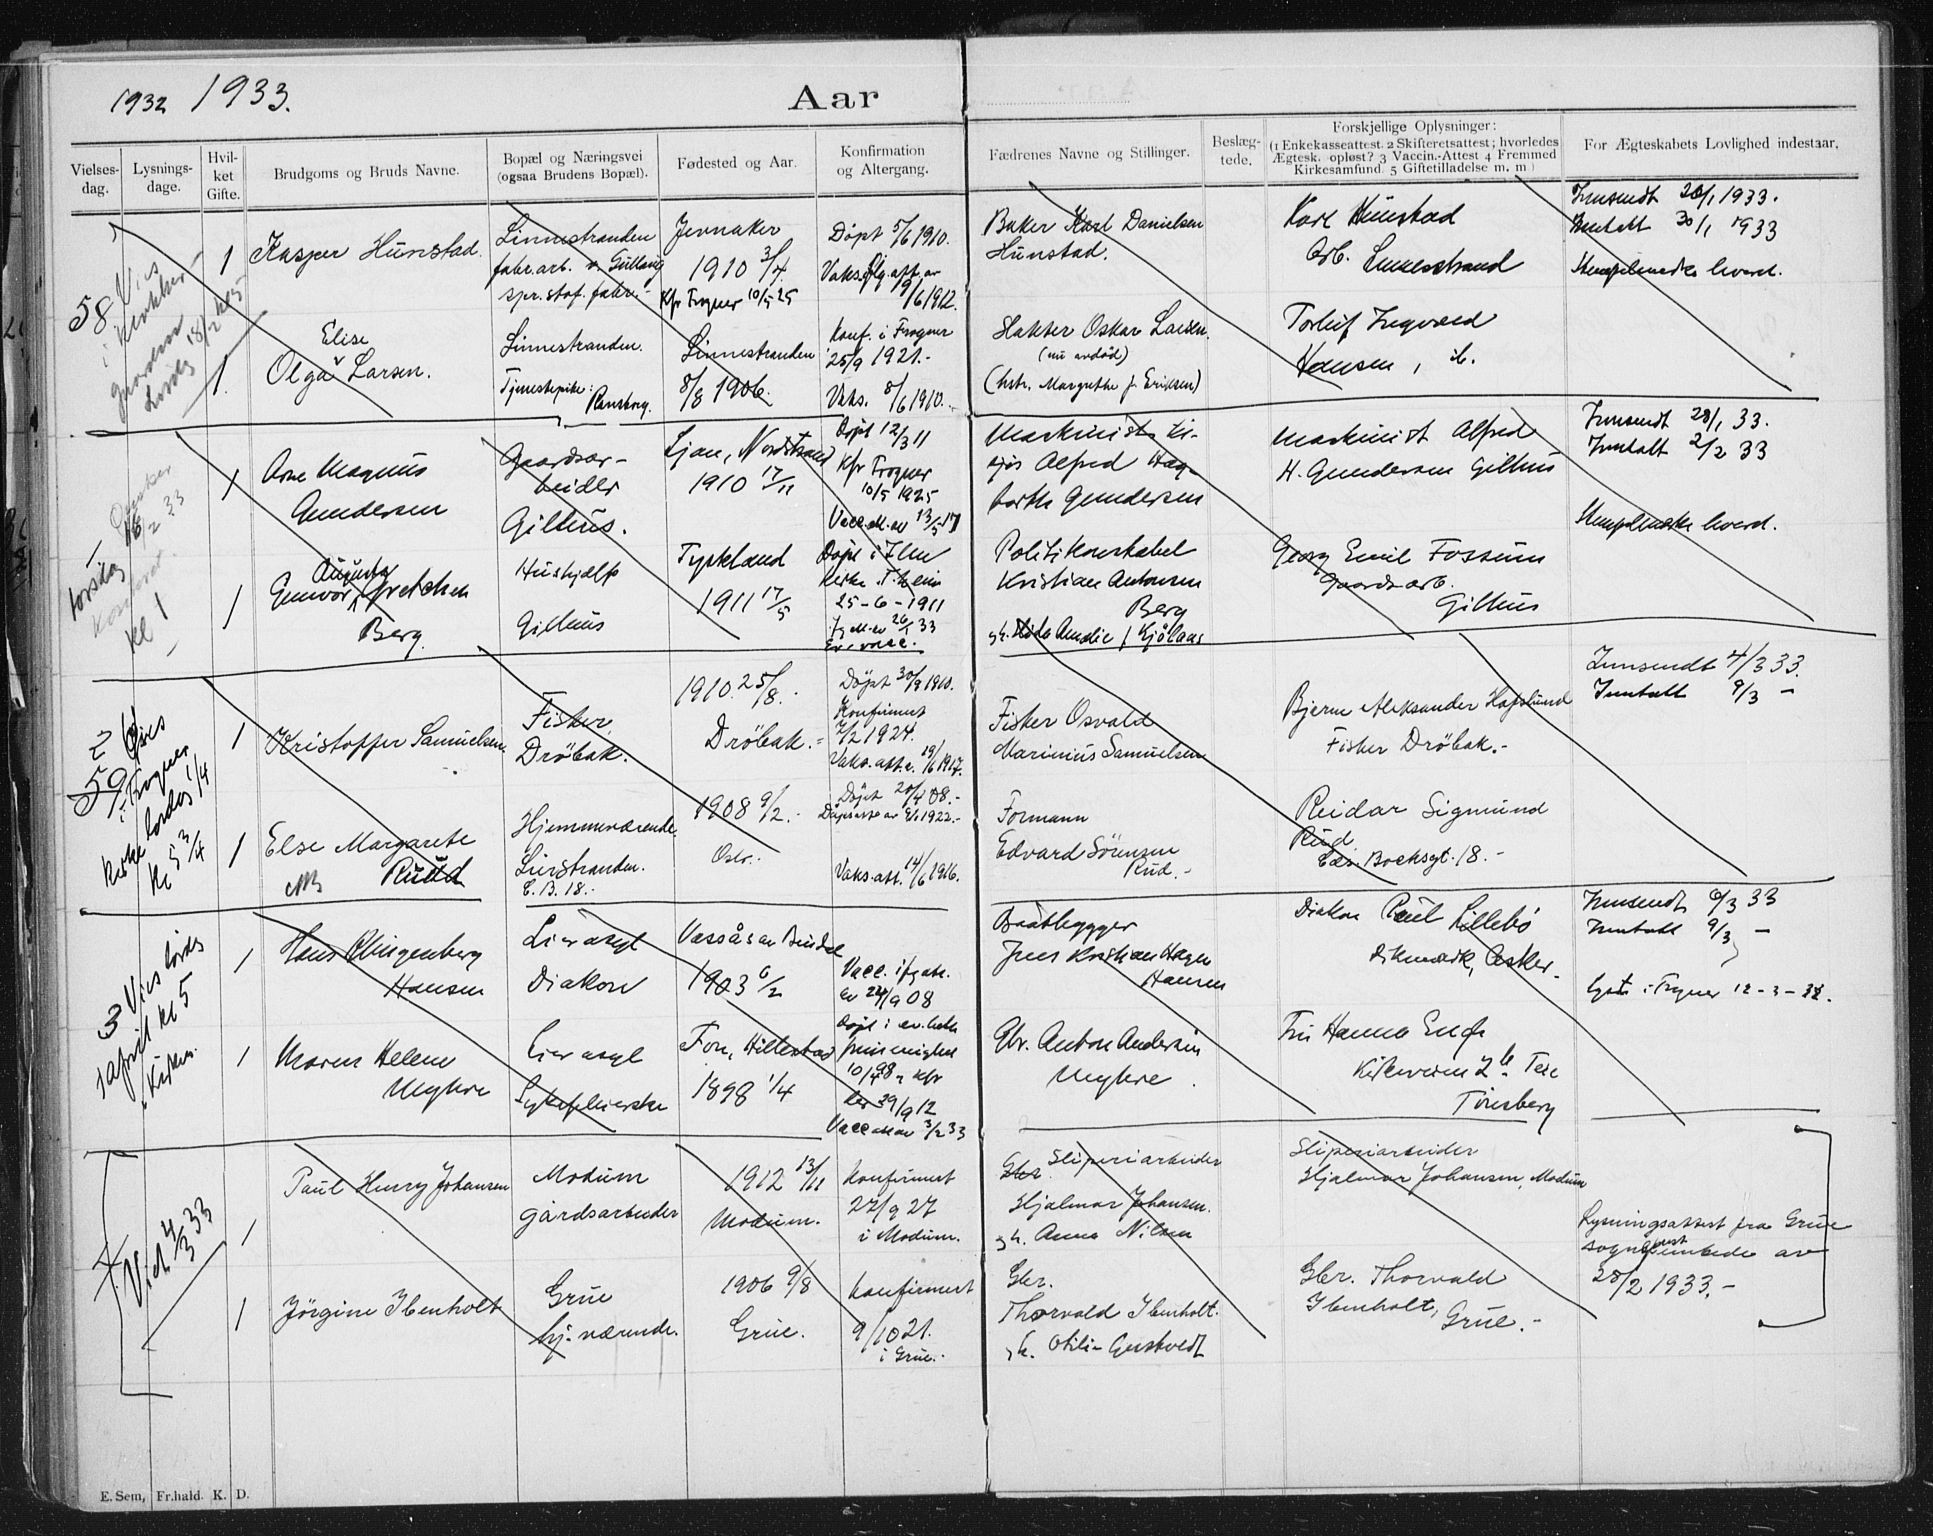 1932 1933.
Aar
Vielses-
dag.
Lysnings-
dage.
Hvil-
ket
Gifte.
Brudgoms og Bruds Navne.
Bopæl og Næringsvei
(ogsaa Brudens Bopæl).
Fødested og Aar.
Konfirmation
og Altergang.
Fædrenes Navne og Stillinger.
Beslæg-
tede.
Forskjellige Oplysninger:
(1 Enkekasseattest. 2 Skifteretsattest; hvorledes
Ægtesk. opløst? 3 Vaccin.-Attest 4 Fremmed
Kirkesamfund. 5 Giftetilladelse m. m)
For Ægteskabets Lovlighed indestaar.
58
Vies
i
18/2 kl 5
1
Kasper Hunstad.
Linnestranden
fabr.arb. v. Gullaug
spr.stof.fabr.
Jevnaker
1910 3/4
Kfr Frogner 10/5 25
Döpt 5/6 1910.
Vaks. att. av
9/6 1912.
Baker Karl Danielsen
Hunstad.
Karl Hunstad
Arb. Linnesstrand
Innsendt 28/1 1933.
Inntatt 30/1 1933
Stempelmerke leverd.
1.
Elise
Olga v Larsen.
Linnestranden.
Tjenestepike:
Linnestranden
8/8 1906.
Konf. i Frogner
25/9 1921.-
Vaks. 8/6 1910.-
Slakter Oskar Larsen
(nu avdöd)
(hstr. Margrethe f. Eriksen)
Torleif Ingvald
Hansen, ib.
torsdag
16/2 33
kl 1
1
Arne Magnus
Gundersen
Gaardsar-
beider
Gilhus.
Ljan, Nordstrand
1910 17/11
Döpt 12/3 11
Kfr Frogner
10/5 1925
Vacc.att. av 13/5 17
Maskinist
Alfred Hag-
barth Gundersen
Maskinist Alfred
H. Gundersen Gilhus
Innsendt 28/1 33.
Inntatt 2/2 33
Stempelmerke leverd.
1
Augusta
Gunvor Gretchen
Berg.
Hushjelp
Gilhus
Tyskland
1911 17/5
Döpt i Ilen
kirke T.heim
25-6-1911
26/1 33
Er vacc.
Politikonstabel
Kristian Antonsen
Berg
Amalie f. Kjölaas
Georg Emil Fossum
Gaardsarb.
Gilhus
2
59
Vies
i Frogner
kirke lördag 1/4
kl 5 3/4
1
Kristoffer Samuelsen.
Fisker,
Dröbak.
1910 25/8.
Dröbak.-
Döpt 30/9 1910.
Konfirmert
7/2 1924.
Vaks.att.a. 19/6 1917.
Fisker Osvald
Marinius Samuelsen
Bjerne Aleksander Hafslund
Fisker Dröbak.-
Innsendt 4/3 33.
Inntatt 9/3 -
1
Else Margarete
Ruud
Hjemmeværende.
Lierstranden.
C.B. 18.-
1908 9/2.-
Oslo.
Döpt 20/4 08.-
Dåpsatte av 9/1 1922.-
Vaks.att. 14/6 1916.
Formann
Edvard Sörensen
Rud.-
Reidar Sigmund
Rud.
18.-
3 Vies lördag
1 april kl 5
i Kirken.
1
Hans Klingenberg
Hansen
Lier asyl
Diakon
Vassås av Bindal
1903 6/2
Vacc. ifg att.
av 24/9 08
Baatbygger
Jens Kristian Hagen
Hansen
Diakon Paul Lillebö
Dikemark, Asker.
Innsendt 6/3 33
Inntatt 9/3 -
Lyst i Frogner 12-3-32.
1
Maren Helene
Unghre
Lier asyl
Sykepleierske
Fon, Hillestad
1898 1/4
Döpt i ev.luth
frimenighet
10/4 98, kfr
29/9 12
Vacc att av 3/2 33
Gbr. Anton Andersen
Unghre.
Fru Hanna Engh
Kirkeveien 2 b Teie
Tönsberg
4.
Viet 4/3 33
1
Paul Henry Johansen
Modum
gårdsarbeider
1912 13/11
Modum.
Konfirmert
27/9 27
i Modum.
Sliperiarbeider
Hjalmar Johansen.
h. Anna Nilsen
Sliperiarbeider
Hjalmar Johansen, Modum
Lysningsattest fra Grue
sogneprestembede av
28/2 1933.-
1
Jörgine Ibenholt
Grue
hj. værende.
1906 9/8
Grue.
Konfirmert
9/10 21.
i Grue.-
Gbr.
Thorvald Ibenholt.
h. Otilie Gustvedt
Gbr. Thorvald
Ibenholt, Grue.-
E. Sem, Fr.hald. K. D.